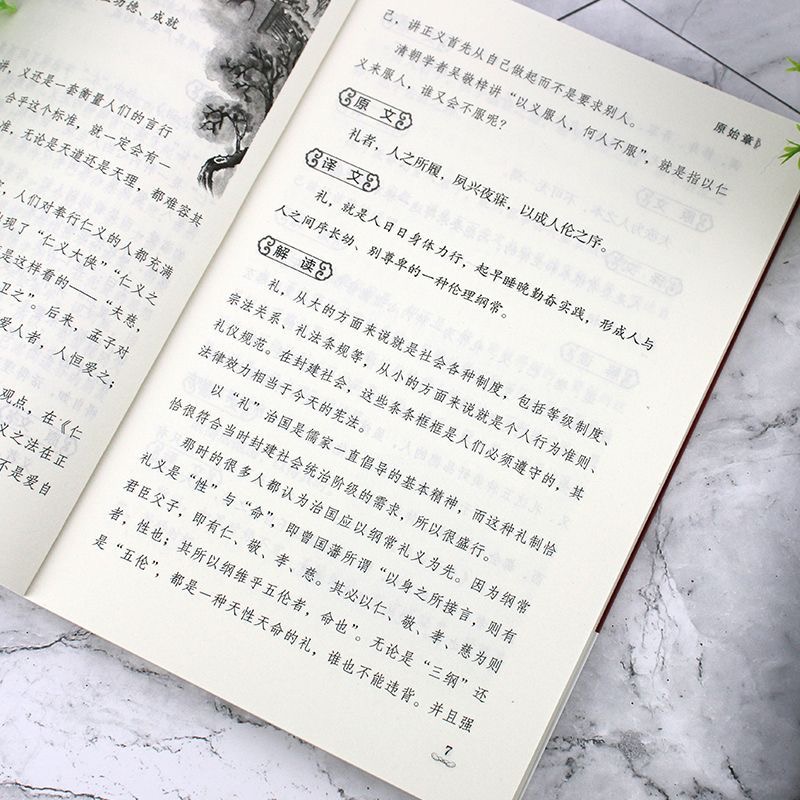 功德、成就
讲，义还是一套衡量人们的言行
合乎这个标准，就一定会有一
准，无论是天道还是天理，都难容其
人们对奉行仁义的人都充满
现了“仁义大侠”“仁义之
是这样看的——“夫慈，
卫之”。后来，孟子对
爱人者，人恒爱之；
观点，在《仁
义之法在正
不是爱自
原始章
己，讲正义首先从自己做起而不是要求别人。
清朝学者吴敬梓讲“以义服人，何人不服”，就是指以仁
义来服人，谁又会不服呢？
原文
礼者，人之所履，夙兴夜寐，以成人伦之序。
译文
礼，就是人日日身体力行，起早睡晚勤奋实践，形成人与
人之间序长幼、别尊卑的一种伦理纲常。
解读
礼，从大的方面来说就是社会各种制度，包括等级制度、
宗法关系、礼法条规等，从小的方面来说就是个人行为准则、
礼仪规范。在封建社会，这些条条框框是人们必须遵守的，其
法律效力相当于今天的宪法。
以“礼”治国是儒家一直倡导的基本精神，而这种礼制恰
恰很符合当时封建社会统治阶级的需求，所以很盛行。
那时的很多人都认为治国应以纲常礼义为先。因为纲常
礼义是“性”与“命”，即曾国藩所谓“以身之所接言，则有
君臣父子，即有仁、敬、孝、慈。其必以仁、敬、孝、慈为则
者，性也；其所以纲维乎五伦者，命也”。无论是“三纲”还
是“五伦”，都是一种天性天命的礼，谁也不能违背。并且强
7